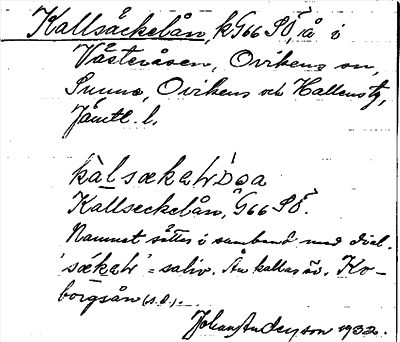 Kallsäckelån, k G66 SÖ, å i
Västeråsen, Ovikens sn,
Sunne, Ovikens och Hallens tg,
Jämtl. l.
Kallseckelån, G66 SÖ.
Namnet sättes i samband med dial.
= saliv. Ån kallas äv. Ko-
borgsån (s.d.).
Johan Anderson 1932.